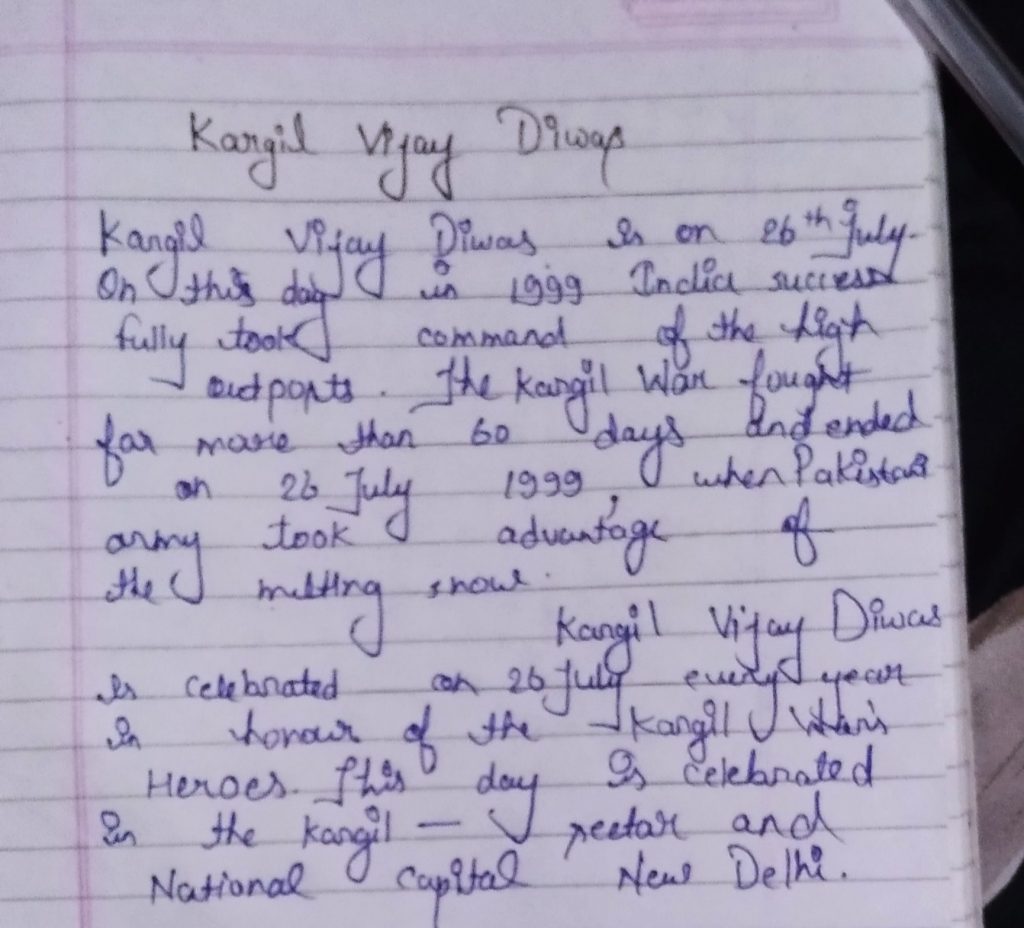 Kargil Vijay Diwas
Kargil Vijay Diwas is on 26th July.
On this day in 1999 India success
fully took command of the high
outposts. The Kargil War fought
for more than 60 days and ended
on 26 July 1999, when Pakistan
army took advantage of
the melting snow.
Kargil Vijay Diwas
is celebrated on 26 July every year
in honour of the Kargil War's
Heroes. This day is celebrated
in the Kargil — sector and
National Capital New Delhi.